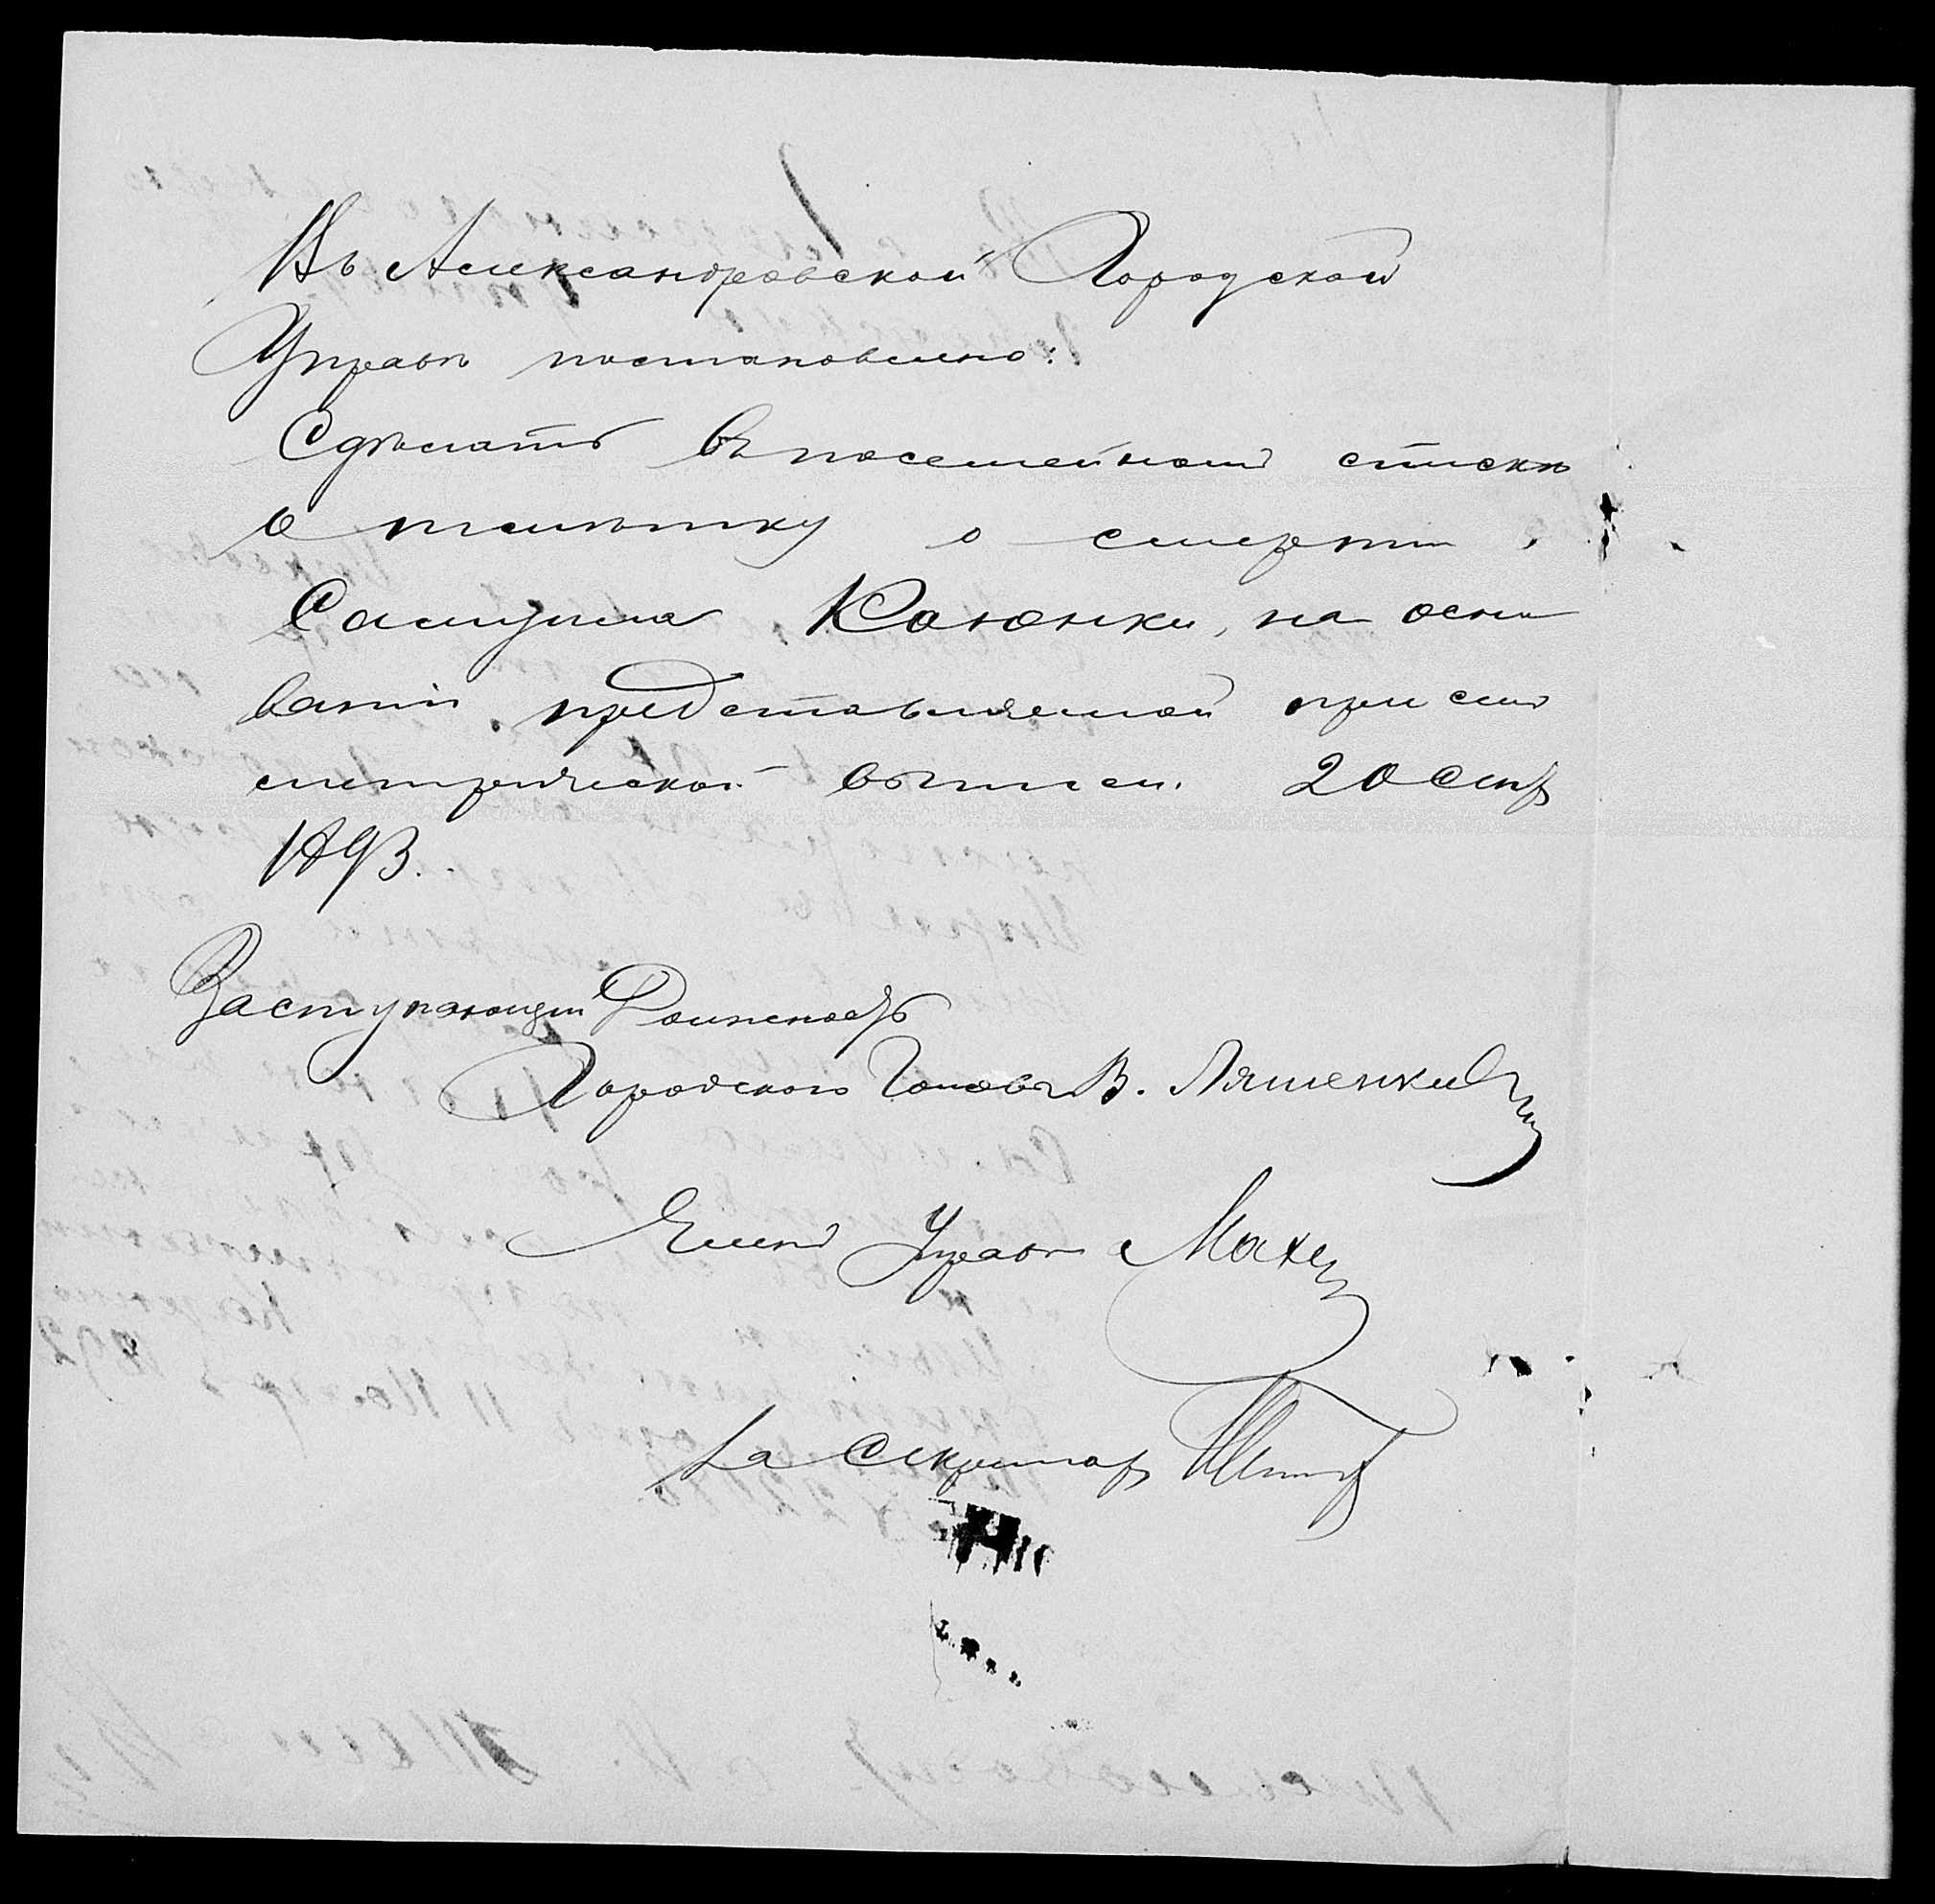 Въ Александровской Городской
Управѣ постановлено:
Сдѣлать въ посемейномъ спискѣ
отмѣтку о смерти
Самуила Каюнки, на осно
ваніи представляемой при семъ
метрической выписи. 20 Сент
1893.
Заступающій Должность
Городского Головы В. Ляшенко
Членъ Управы
За Секретаря